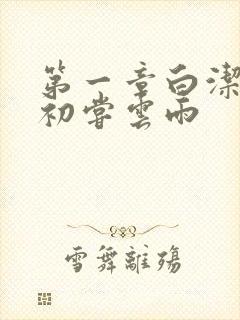 第一章白潔
初嘗雲雨
雪舞離殤